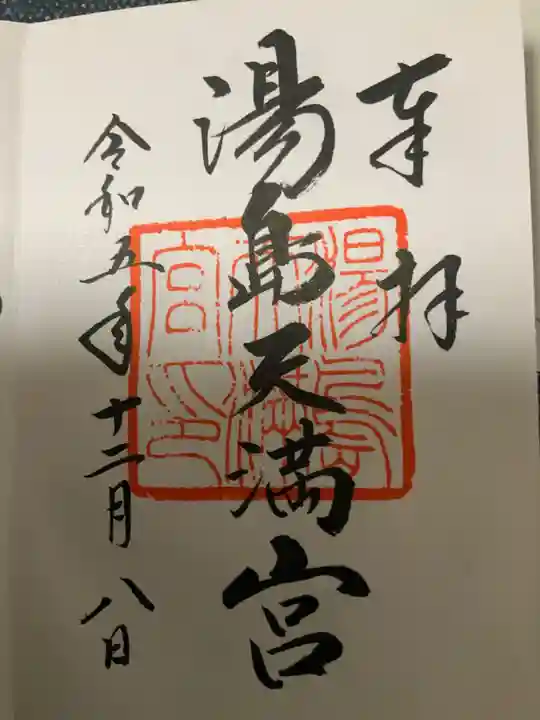 奉拝
湯島天満宮
令和五年十二月八日
湯島天満宮之印